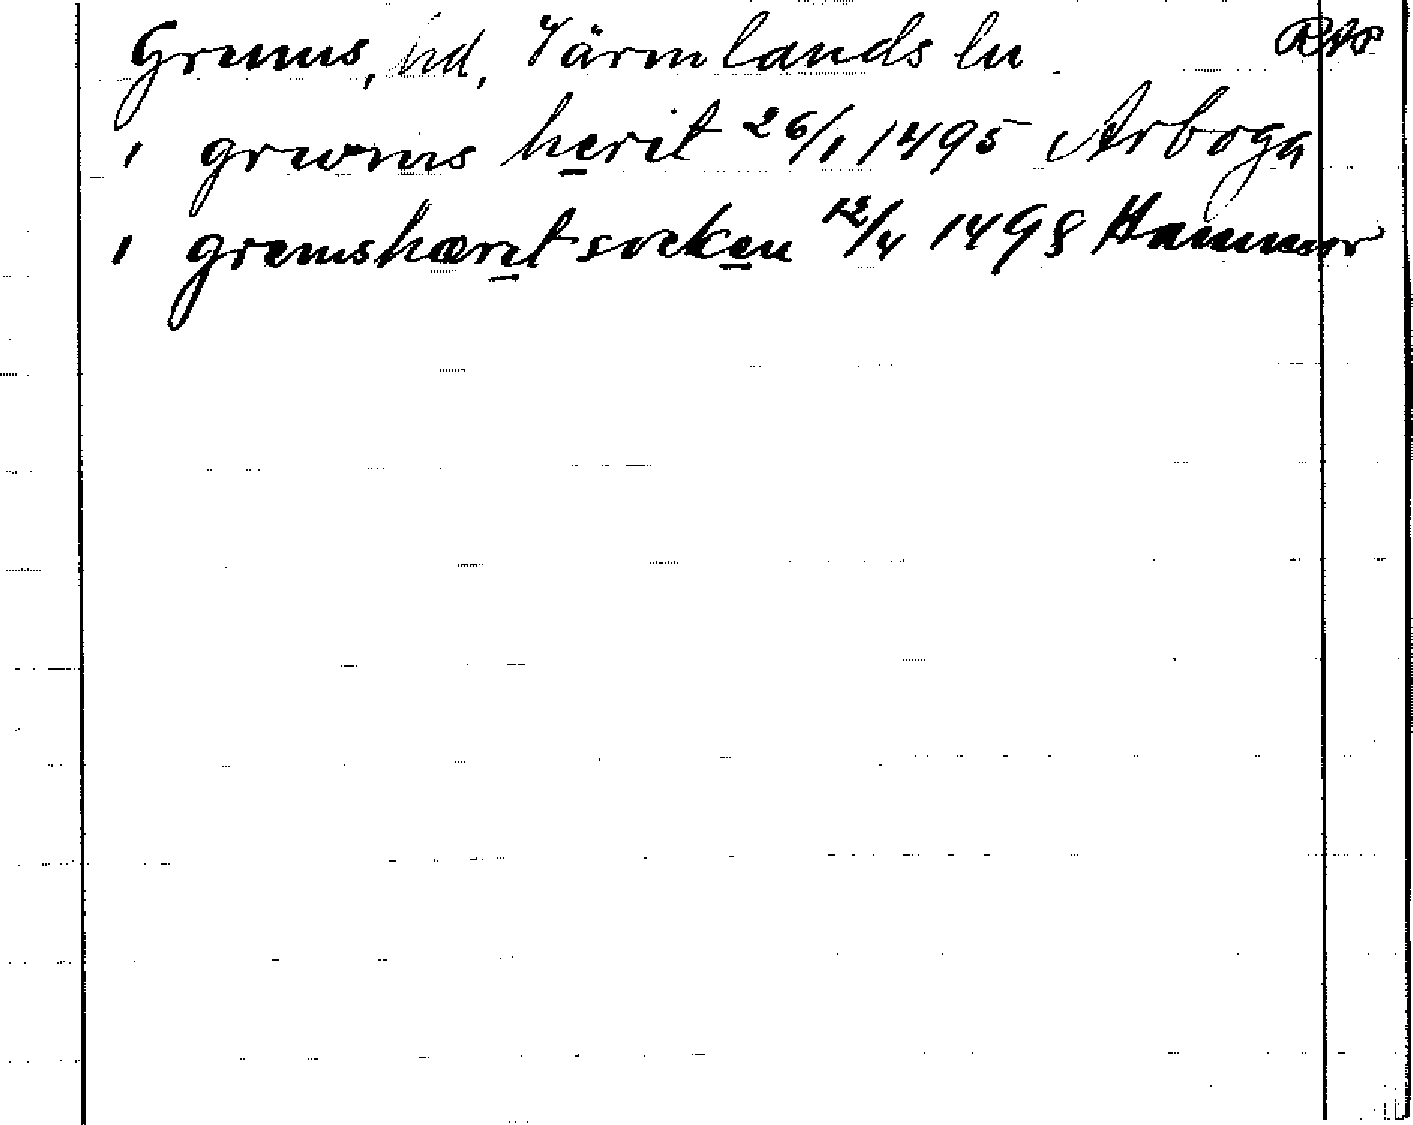 Grums, hd, Värmlands ln RAP
i grwms herit 26/1 1495 Arboga
i gremshæret socken 12/4 1498 Hammar